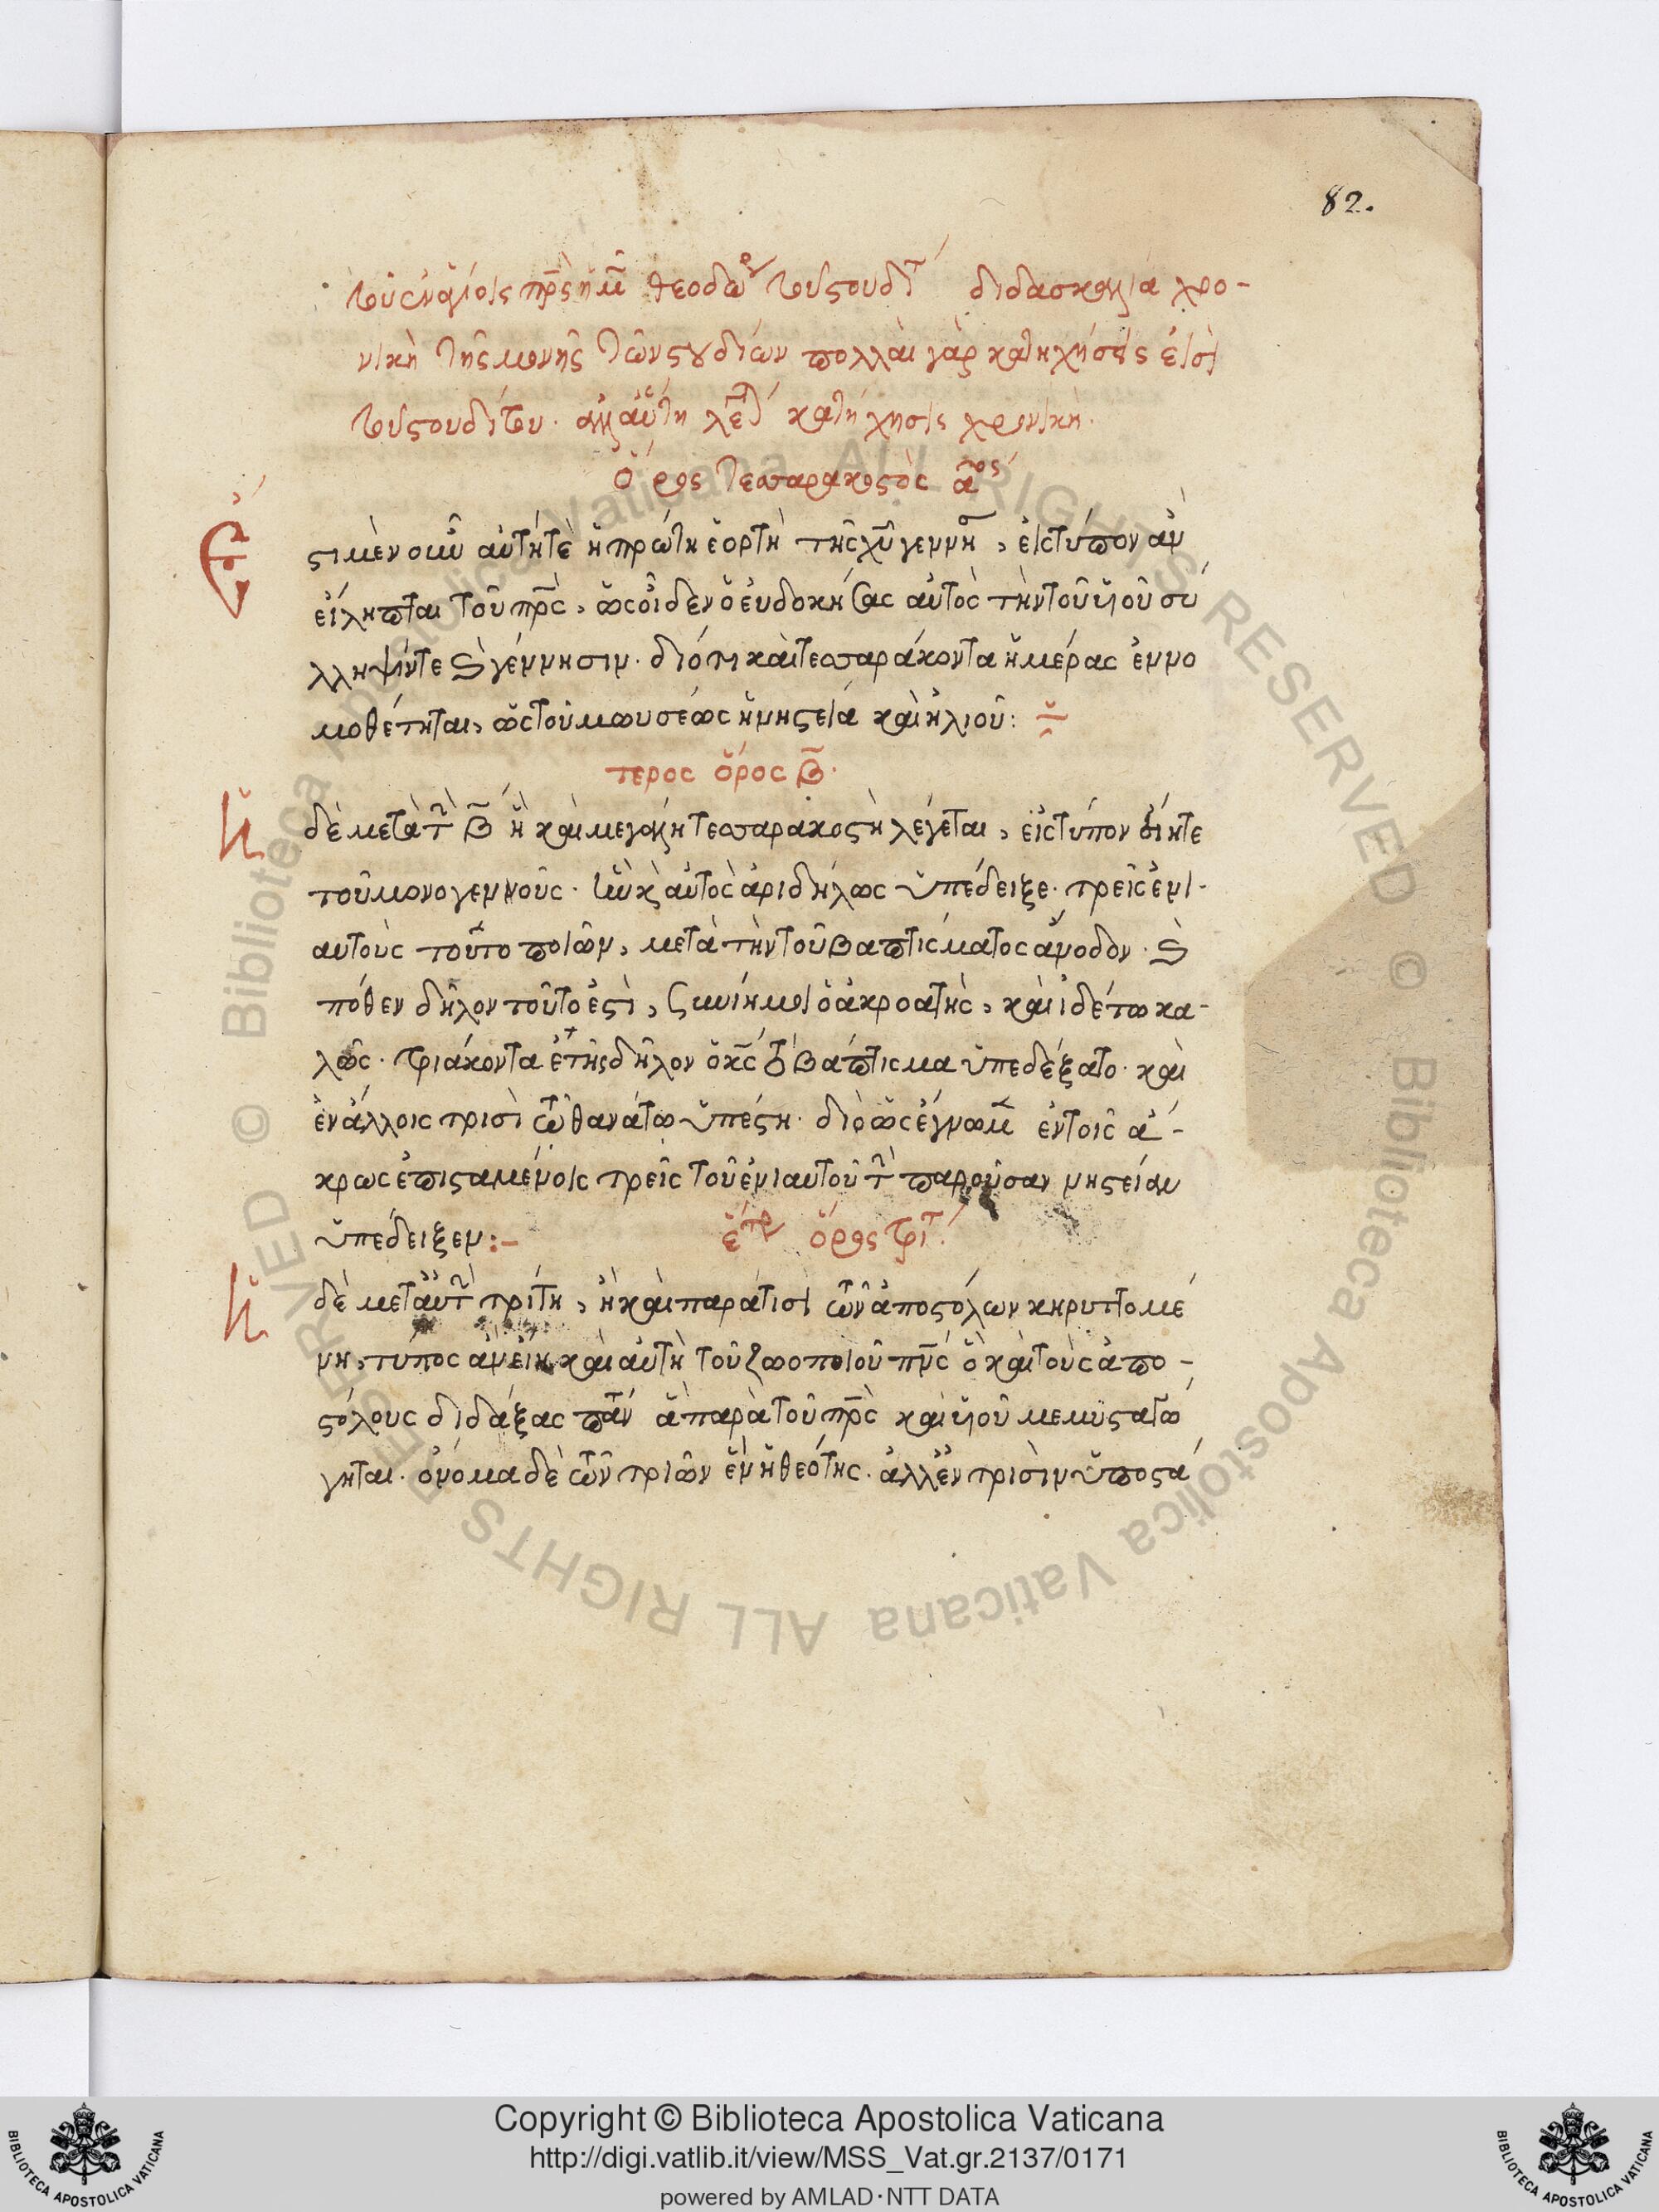 82.
τοῦ ἐν ἁγίοις πρ̅ς ἡμῶ̅ θεοδώρου τοῦ στουδίτ διδασκαλία χρο-
νικὴ τῆς μονῆς τῶν στουδίων πολλαὶ γὰρ κατηχήσεις εἰσὶ
τοῦ στουδίτου· ἀλλ' αὕτη λέγετ κατήχησις χρονική·
ὅρος τεσσαρακοστὸς α̅ος
Ἔστι μὲν οὖν αὐτή τε ἡ πρώτη ἑορτὴ τῆς χ̅υ γεννή, εἰς τύπον ἀν
είληπται τοῦ πρ̅ς, ὡς οἶδεν ὁ εὐδοκήσας αὐτὸς τὴν τοῦ υἱοῦ σύ
λληψίν τε καὶ γέννησιν· διότι καὶ τεσσαράκοντα ἡμέρας ἐννο
μοθέτηται, ὡς τοῦ μωυσέως ἡ νηστεία καὶ ἡλιοῦ:
τερος ὅρος β̅·
Ἡ δὲ μετὰ τ β̅ ἣ καὶ μεγάλη τεσσαρακοστὴ λέγεται, εἰς τύπον εἴη τε
τοῦ μονογεννοῦς· ἣν κ αὐτὸς ἀριδήλως ὑπέδειξε· τρεῖς ἐνι-
αυτοὺς τοῦτο ποιῶν, μετὰ τὴν τοῦ βαπτίσματος ἄνοδον· καὶ
πόθεν δῆλον τοῦτο ἐστὶ, ὁ ἀκροατής, καὶ ἰδέτω κα-
λῶς· τριάκοντα ἔτης δῆλον ὁ κ̅ς τὸ βάπτισμα ὑπεδέξατο· καὶ
ἐν ἄλλοις τρισὶ τῶ θανάτω ὑπέστη· διὸ ὡς ἔγνωμ ἐν τοῖς ἄ-
κρως ἐπισταμένοις τρεῖς τοῦ ἐνιαυτοῦ τ παροῦσαν νηστείαν
ὑπέδειξεν:– ἕτερ ὅρος τρίτ·
Ἡ δὲ μετ' αὐτ τρίτη, ἡ καὶ παρά τισι τῶν ἀποστόλων κηρυττομέ
νη, τύπος ἂν εἴη καὶ αὐτὴ τοῦ ζωοποιοῦ πν̅ς ὃ καὶ τοὺς ἀπο-
στόλους διδάξας πάν ἃ παρὰ τοῦ πρ̅ς καὶ υἱοῦ μεμυσταγώ
γηται· ὄνομα δὲ τῶν τριῶν ἓν ἡ θεότης· ἀλλ' ἐν τρισὶν ὑποστά
Copyright © Biblioteca Apostolica Vaticana
http://digi.vatlib.it/view/MSS_Vat.gr.2137/0171
powered by AMLAD·NTT DATA
BIBLIOTECA APOSTOLICA VATICANA
BIBLIOTECA APOSTOLICA VATICANA
© Biblioteca Apostolica Vaticana ALL RIGHTS RESERVED
© Biblioteca Apostolica Vaticana ALL RIGHTS RESERVED